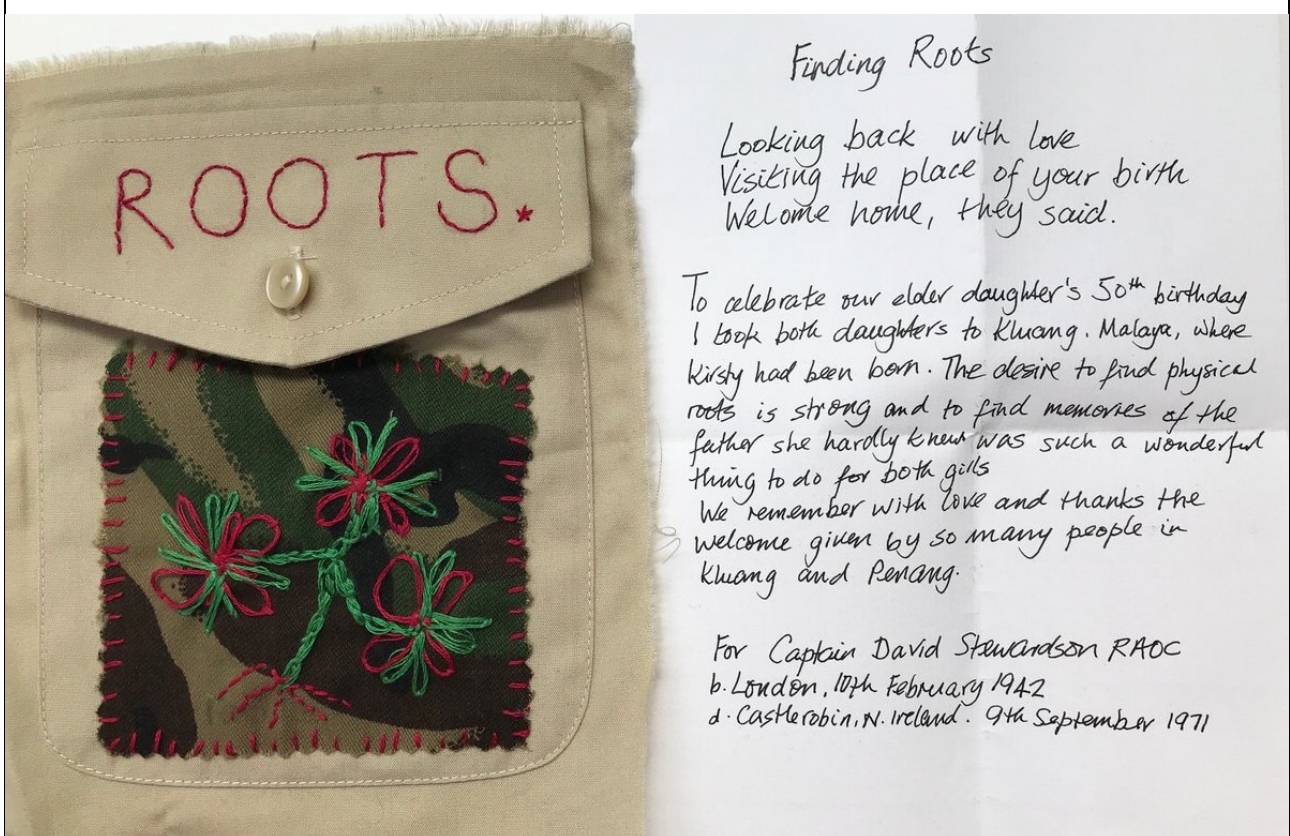 ROOTS.*
Finding Roots
Looking back with love
Visiting the place of your birth
Welome home, they said.
To celebrate our elder daughter's 50th birthday
I took both daughters to Kluang. Malaya, where
Kirsty had been born. The desire to find physical
roots is strong and to find memories of the
father she hardly knew was such a wonderful
thing to do for both girls
We remember with love and thanks the
welcome given by so many people in
Kluang and Penang.
For Captain David Stewardson RAOC
b. London, 10th February 1942
d. Castlerobin, N. Ireland. 9th September 1971